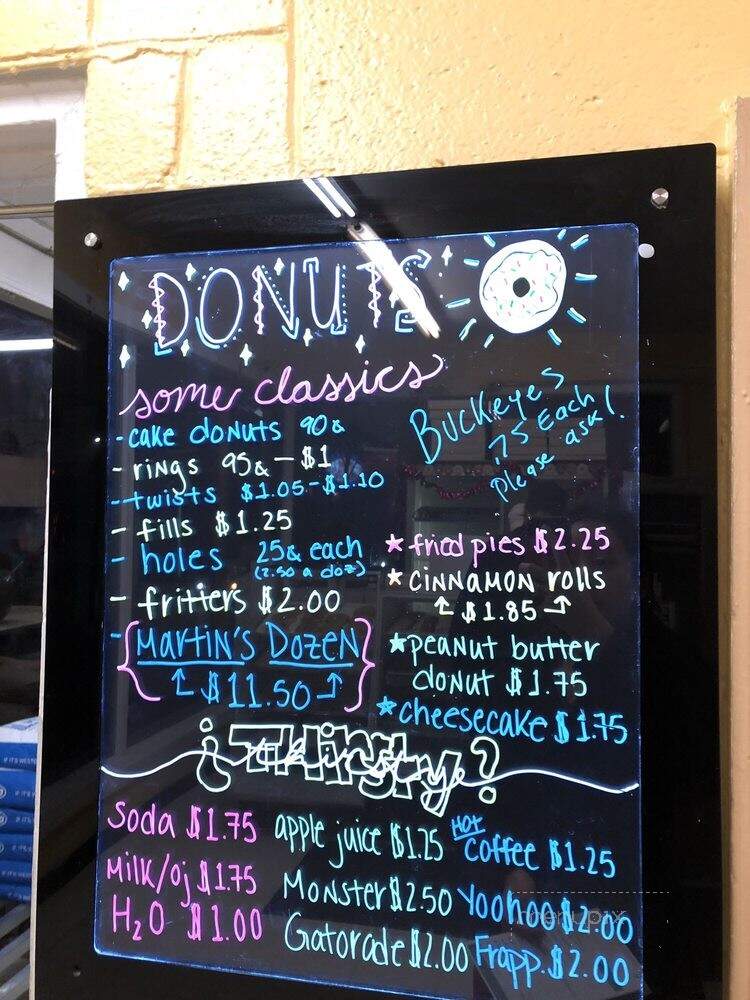 DONUTS
some classics
-cake donuts 90¢
- rings 95¢ - $1
-twists $1.05-$1.10
- fills $1.25
- holes 25¢ each
(2.50 a doz)
- fritters $2.00
- {Martin's Dozen}
$11.50
Buckeyes
.75 Each
Please ask!
★ fried pies $2.25
★ cinnamon rolls
$1.85
★peanut butter
donut $1.75
★cheesecake $1.75
¿Thirsty?
Soda $1.75
Milk/oj $1.75
H2O $1.00
apple juice $1.25
Monster $2.50
Gatorade $2.00
HOT
coffee $1.25
Yoohoo $2.00
Frapp. $2.00
menupix